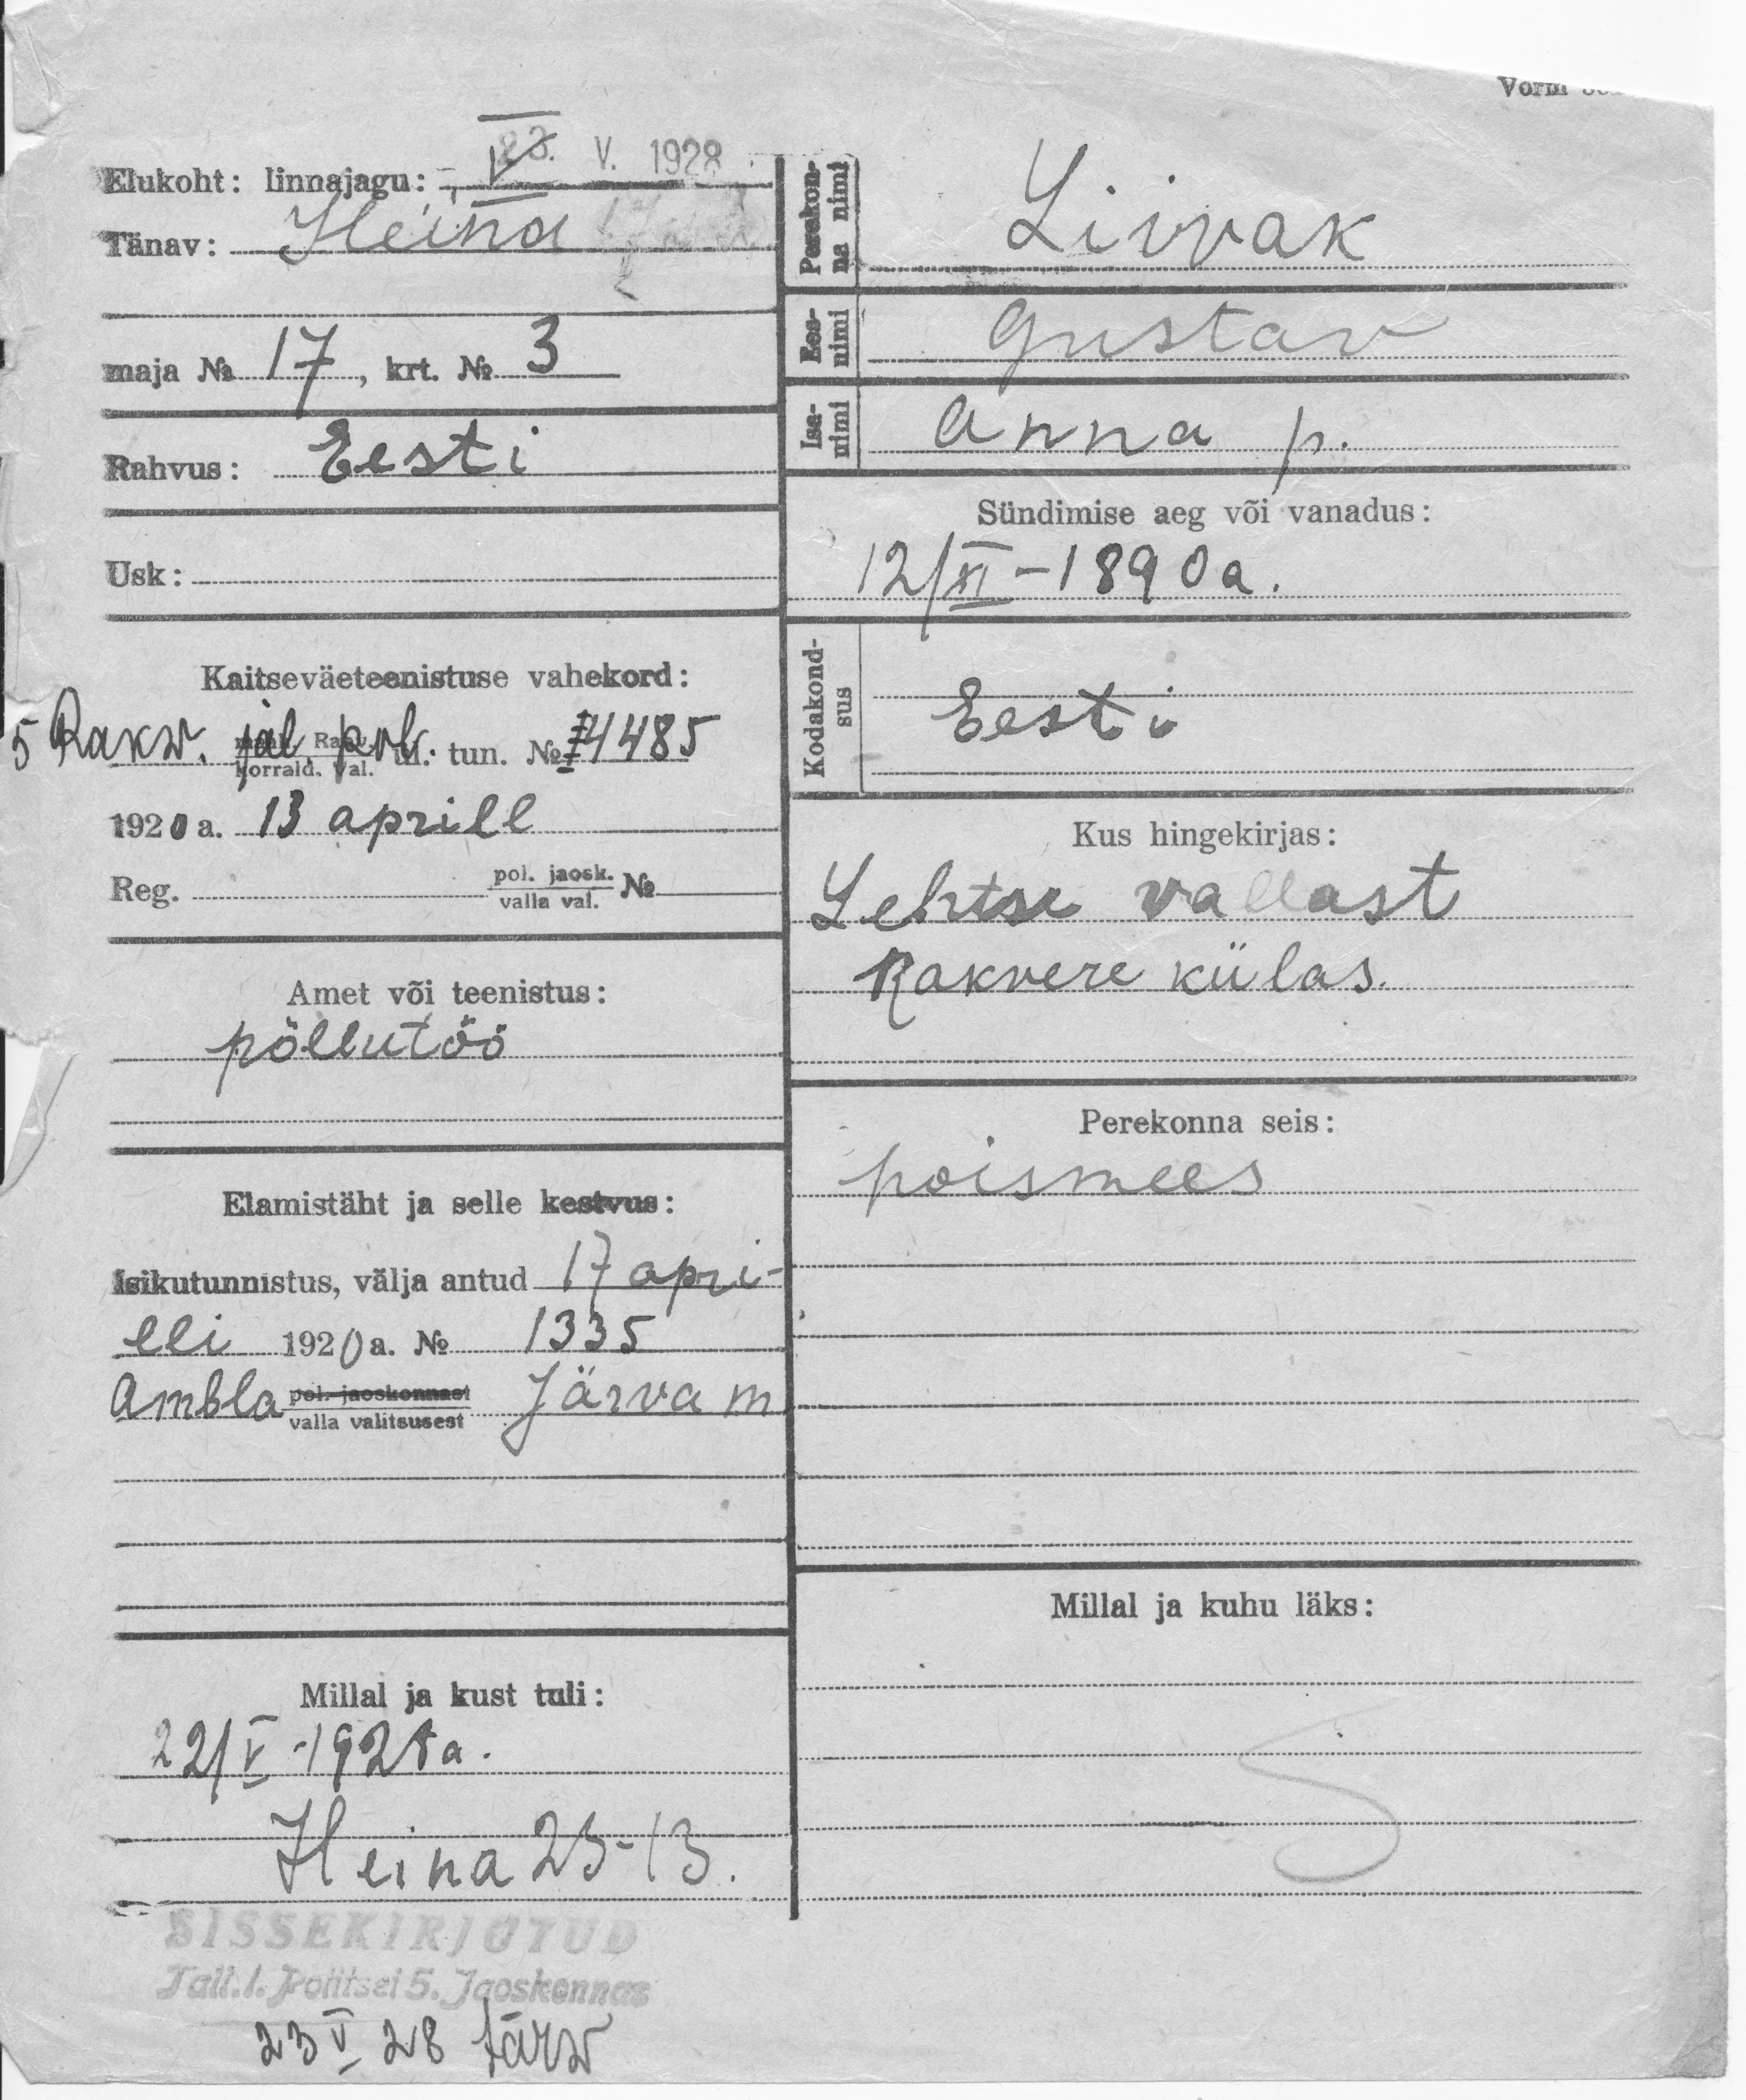 Vorm
Elukoht: linnajagu: V 23. V. 1928
Tänav: Heina
maja № 17, krt. № 3
Rahvus: Eesti
Usk:
Kaitseväeteenistuse vahekord:
5 Rakw. jal. polg. ül. tun. № 14485
korrald. val.
1920 a. 13 aprill
Reg. pol. jaosk. №
valla val.
Amet või teenistus:
põllutöö
Elamistäht ja selle kestvus:
Isikutunnistus, välja antud 17 apri-
lli 1920 a. № 1335
Ambla pol. jaoskonnast Järva m
valla valitsusest
Millal ja kust tuli:
22/V-1928 a.
Heina 23-13.
SISSEKIRJOTUD
Tall. l. Politsei 5. Jaoskonnas
23 V 28 Järw
Perekon-
na nimi
Liivak
Ees-
nimi
Gustav
Isa-
nimi
Anna p.
Sündimise aeg või vanadus:
12/XI-1890a.
Kodakond-
sus
Eesti
Kus hingekirjas:
Lehtse vallast
Rakvere külas.
Perekonna seis:
poismees
Millal ja kuhu läks: